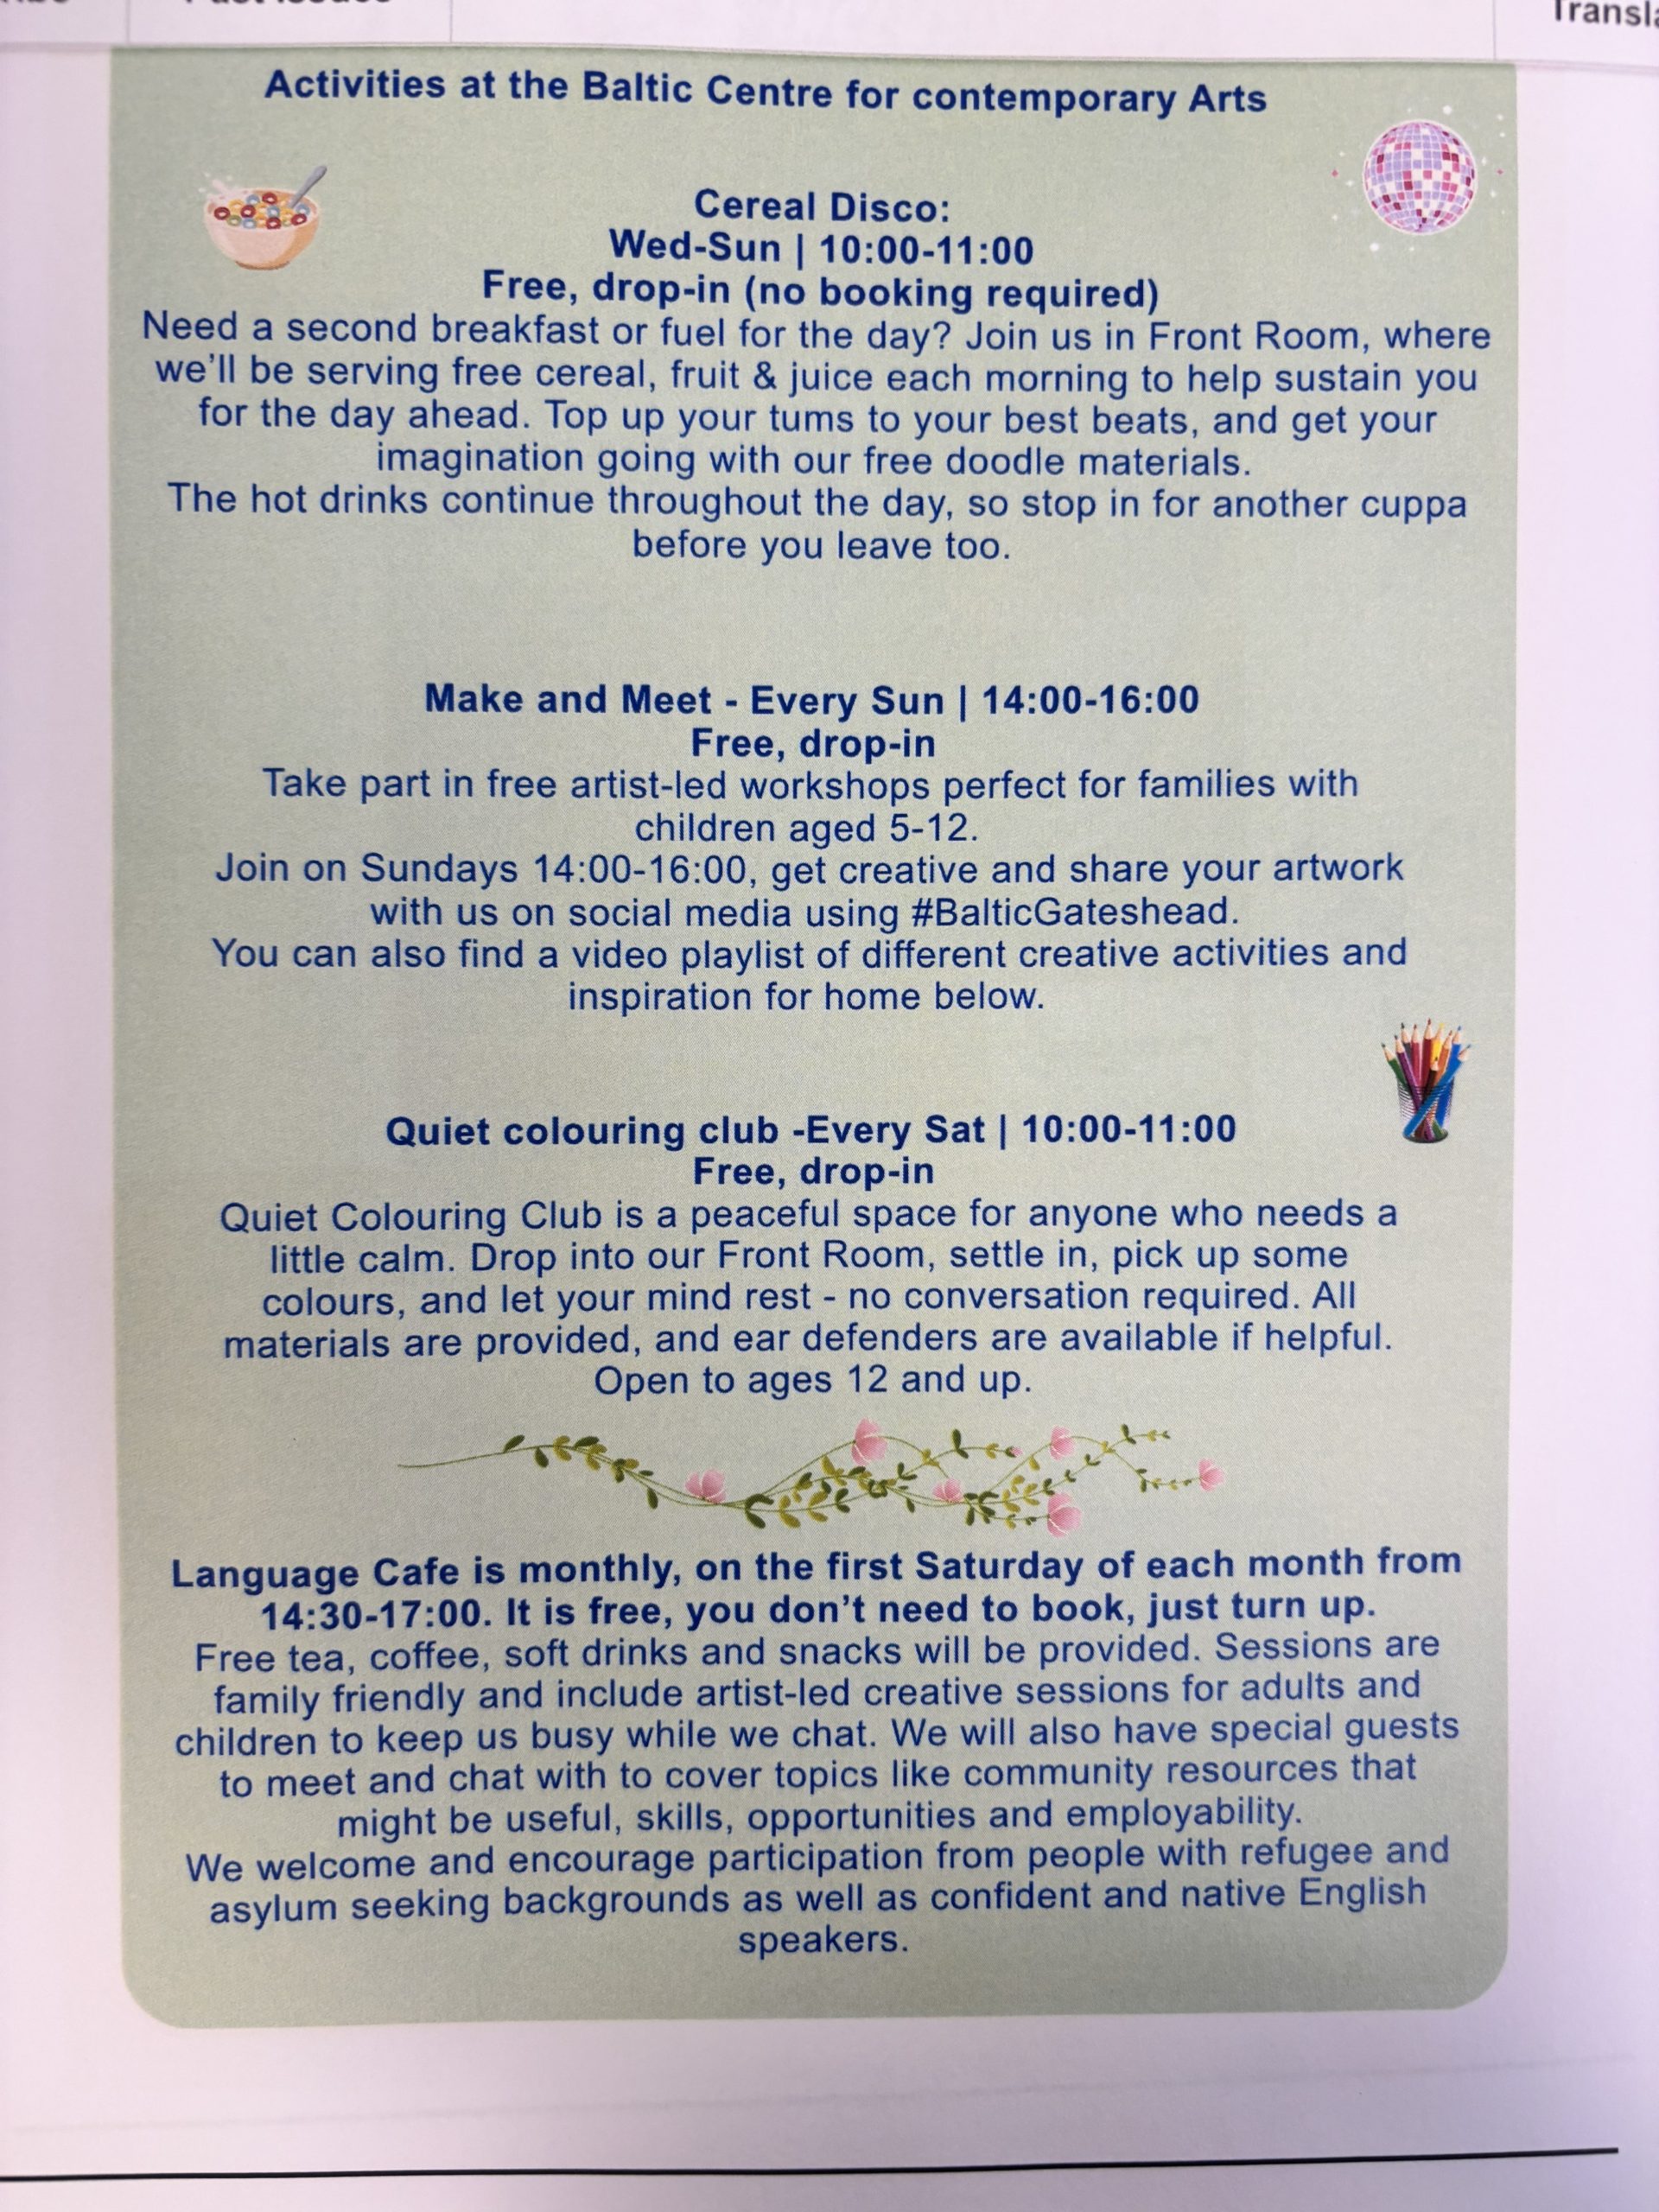 Past Issues
Activities at the Baltic Centre for contemporary Arts
Cereal Disco:
Wed-Sun | 10:00-11:00
Free, drop-in (no booking required)
Need a second breakfast or fuel for the day? Join us in Front Room, where
we'll be serving free cereal, fruit & juice each morning to help sustain you
for the day ahead. Top up your tums to your best beats, and get your
imagination going with our free doodle materials.
The hot drinks continue throughout the day, so stop in for another cuppa
before you leave too.
Make and Meet - Every Sun | 14:00-16:00
Free, drop-in
Take part in free artist-led workshops perfect for families with
children aged 5-12.
Join on Sundays 14:00-16:00, get creative and share your artwork
with us on social media using #BalticGateshead.
You can also find a video playlist of different creative activities and
inspiration for home below.
Quiet colouring club -Every Sat | 10:00-11:00
Free, drop-in
Quiet Colouring Club is a peaceful space for anyone who needs a
little calm. Drop into our Front Room, settle in, pick up some
colours, and let your mind rest - no conversation required. All
materials are provided, and ear defenders are available if helpful.
Open to ages 12 and up.
Language Cafe is monthly, on the first Saturday of each month from
14:30-17:00. It is free, you don't need to book, just turn up.
Free tea, coffee, soft drinks and snacks will be provided. Sessions are
family friendly and include artist-led creative sessions for adults and
children to keep us busy while we chat. We will also have special guests
to meet and chat with to cover topics like community resources that
might be useful, skills, opportunities and employability.
We welcome and encourage participation from people with refugee and
asylum seeking backgrounds as well as confident and native English
speakers.